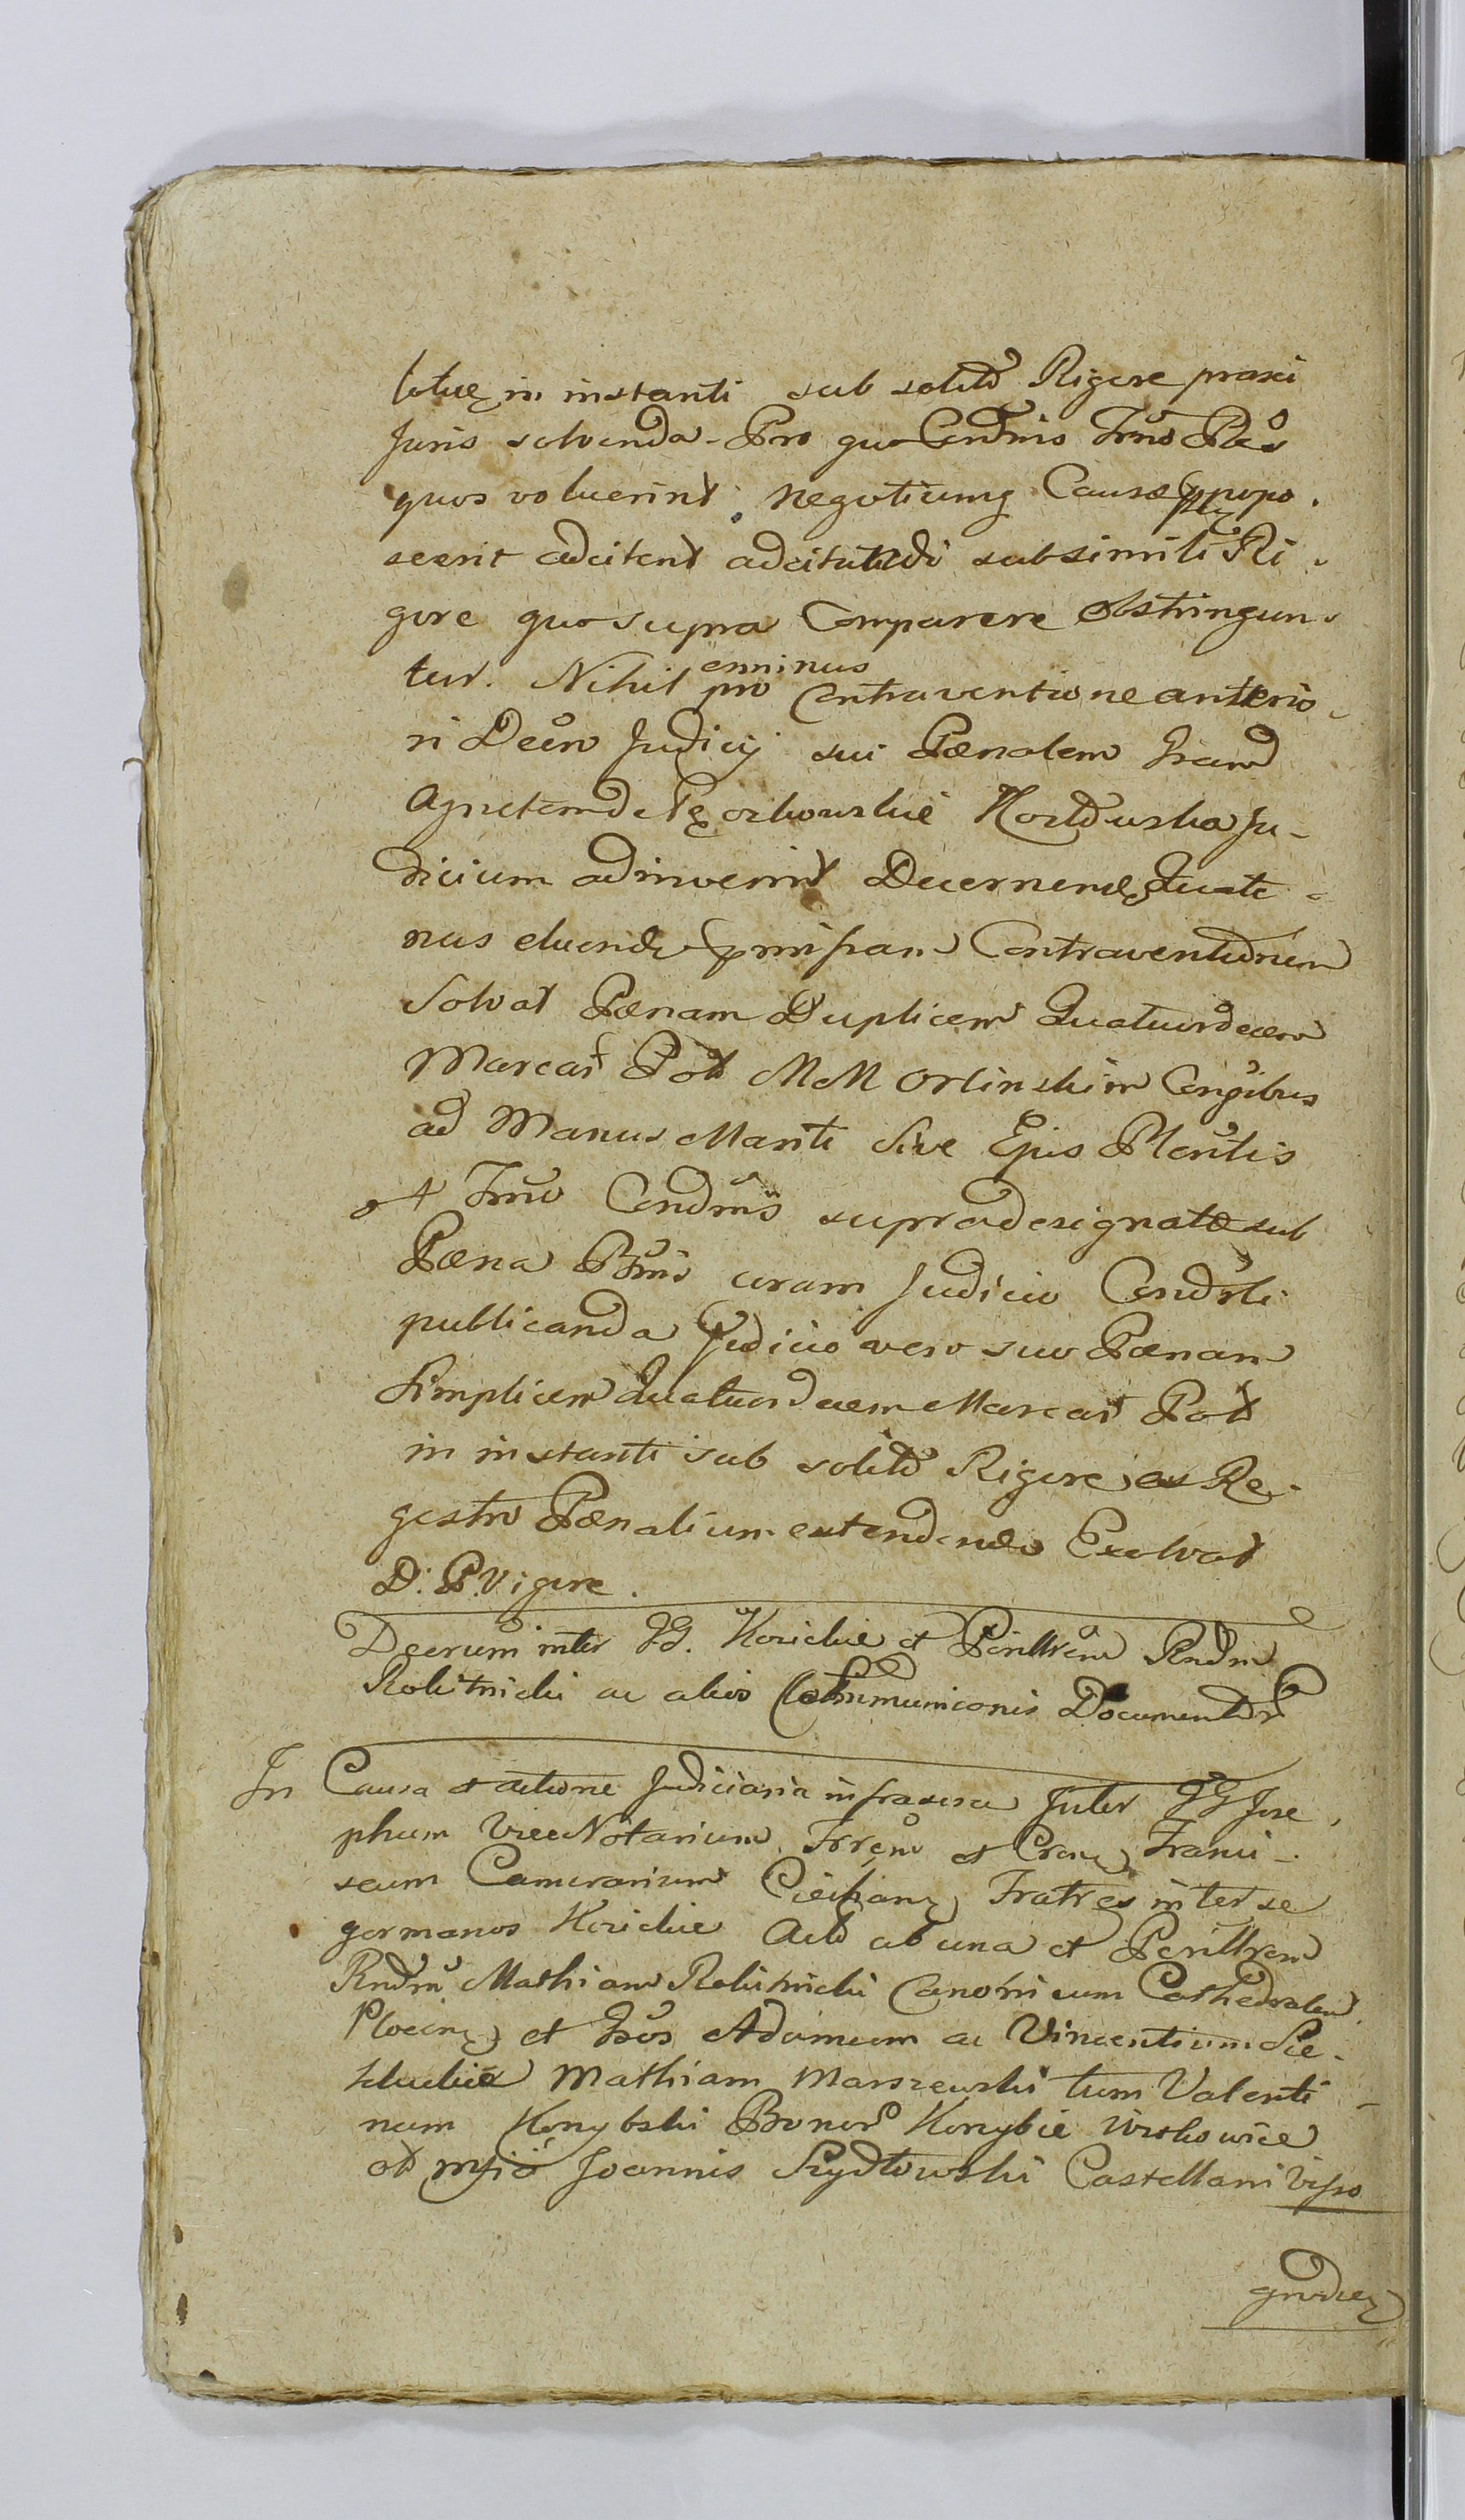 in instanti sub solito Rigore praxi
Juris solvenda. Pro quo Condnis Trno Ptes
quos voluerint negotiumq Causæ
adcitent adcitandi sub simili Ri
gore quo supra Comparere obstringun
tur. Nihil omninus pro Contraventione anterio
ri Decr̃o Judicij sui Pænalem
Judicium adinvenit Decernendo Quate
nus eluendo Contraventionem
Solvat Pænam Duplicem Quatuordecem
Marcas Pol MM Orlinskim Conjgibus
ad Manus Manti sive Ejus Plentis
et Trno Condnis supradesignato sub
Pæna Banis coram Judicio Condrli
publicanda Judicio vero suo Pænam
Simplicem Quatuordecem Marcas Pol
in instanti sub solito Rigore ex Re
gestro Pænalium extendendo Exolvat
D. P. Vigore.
Decrum inter GG. Kozickie et Perillrem Rndm
Rokitnicki ac alios Communiconis Documentor
In Causa et actione Judiciaria infrascra Inter GG Jose
phum ViceNotarium Trrem et Cren Franci
scum Camerarium Ciechan Fratres inter se
germanos Kozickie Act ab una et Perillrem
Rndm Mathiam Rokitnicki Canonicum Cathedralem
Plocen et Gsos Adamum ac Vincentium Sie
kluckie Mathiam Marszewski tum Valenti
num Konybski Bonor Konybie Wirkowice
et mfici Joannis Szydłowski Castellani Visso
grodien